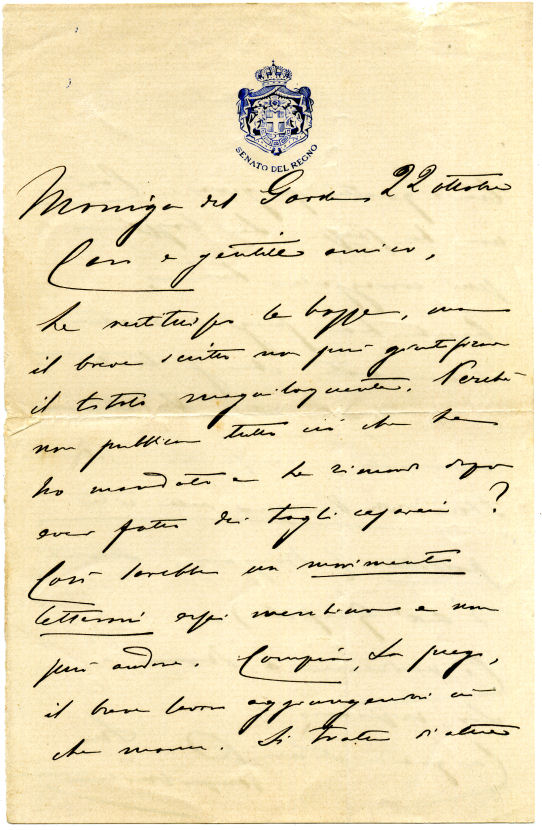 SENATO DEL REGNO
Moniga del Garda 22 ottobre
Caro e gentile amico,
Le restituisco le bozze, ma
il breve scritto non può giustificare
il titolo magniloquente. Perchè
non pubblica tutto ciò che Le
ho mandato e Le rimando dopo
aver fatto dei tagli cesarei ?
Così sarebbe un movimento
letterario assai meschino e non
può andare. Compia, La prego,
il breve lavoro aggiungendovi ciò
che manca. Si tratta d'altro